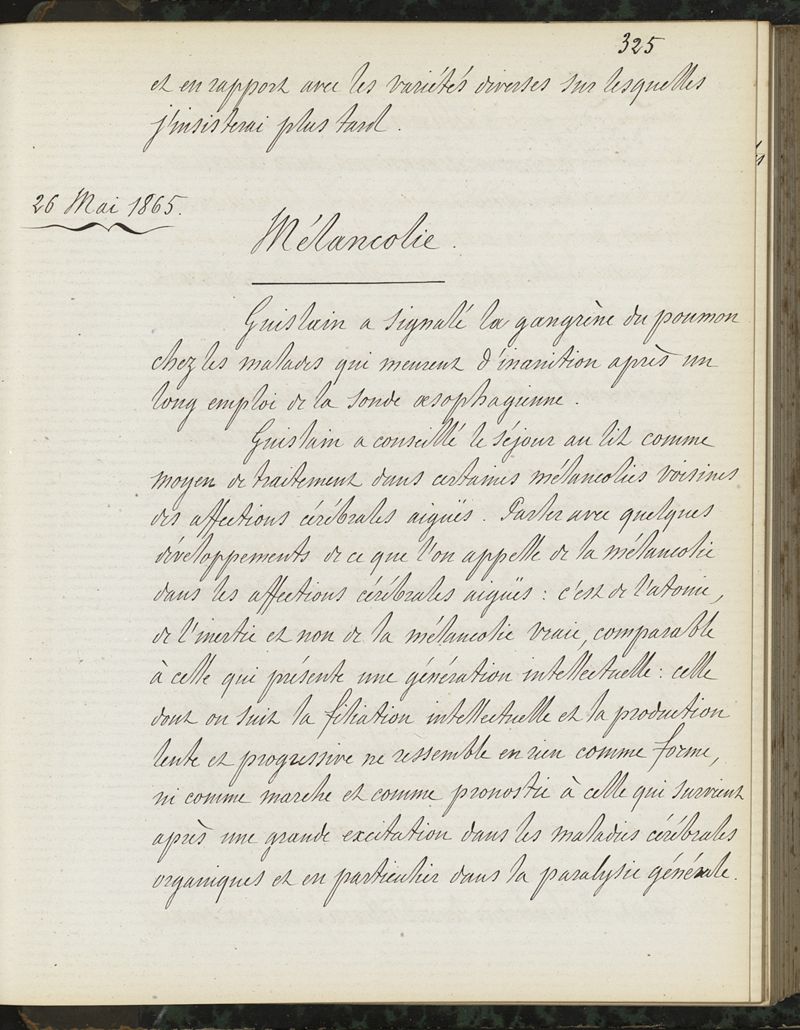 325
et en rapport avec les variétés diverses sur lesquelles
j'insisterai plus tard.
26 Mai 1865.
Mélancolie.
Guislain a signalé la gangrène du poumon
chez les malades qui meurent d'inanition après un
long emploi de la sonde œsophagienne.
Guislain a conseillé le séjour au lit comme
moyen de traitement dans certaines mélancolies voisines
des affections cérébrales aigües. Parler avec quelques
développements de ce que l'on appelle de la mélancolie
dans les affections cérébrales aigües : c'est de l'atonie,
de l'inertie et non de la mélancolie vraie, comparable
à celle qui présente une génération intellectuelle : celle
dont on suit la filiation intellectuelle et la production
lente et progressive ne ressemble en rien comme forme,
ni comme marche et comme pronostic à celle qui survient
après une grande excitation dans les maladies cérébrales
organiques et en particulier dans la paralysie générale.